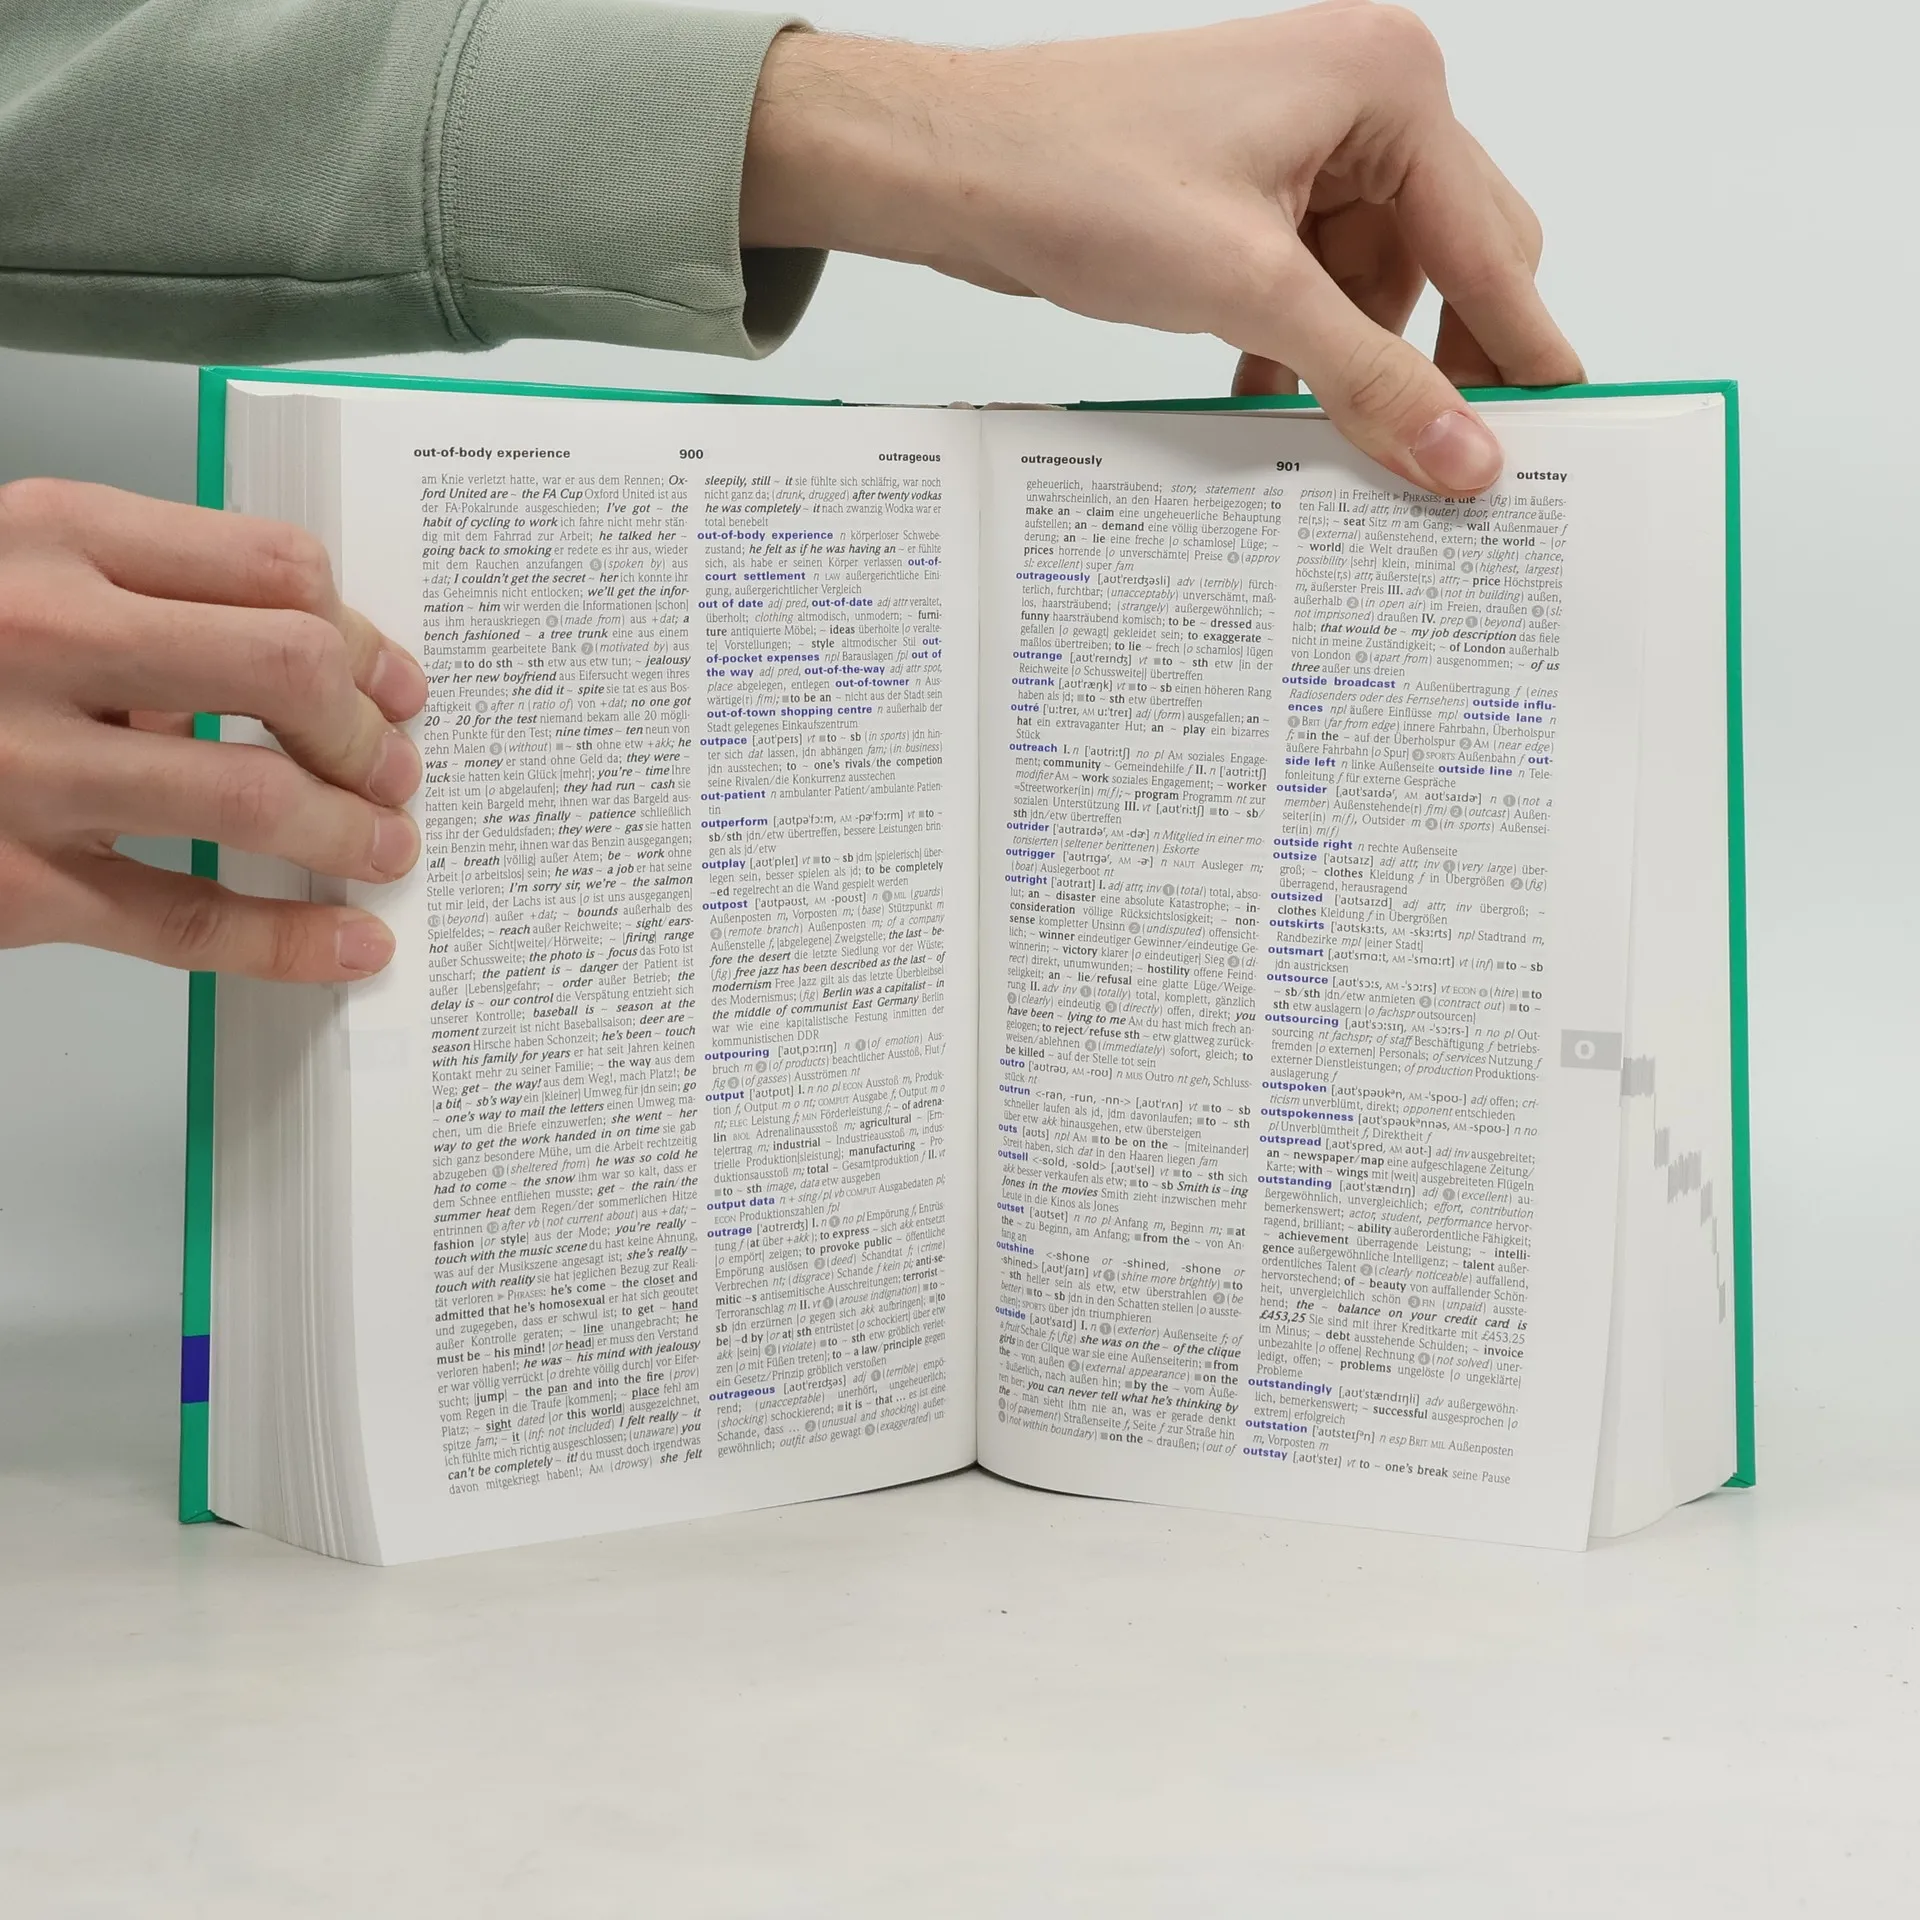 out-of-body experience 900 outrageous
am Knie verletzt hatte, war er aus dem Rennen; Ox-
ford United are ~ the FA Cup Oxford United ist aus
der FA-Pokalrunde ausgeschieden; I've got ~ the
habit of cycling to work ich fahre nicht mehr stän-
dig mit dem Fahrrad zur Arbeit; he talked her ~
going back to smoking er redete es ihr aus, wieder
mit dem Rauchen anzufangen 5 (spoken by) aus
+dat; I couldn't get the secret ~ her ich konnte ihr
das Geheimnis nicht entlocken; we'll get the infor-
mation ~ him wir werden die Informationen |schon|
aus ihm herauskriegen 6 (made from) aus +dat; a
bench fashioned ~ a tree trunk eine aus einem
Baumstamm gearbeitete Bank 7 (motivated by) aus
+dat; ■to do sth ~ sth etw aus etw tun; ~ jealousy
over her new boyfriend aus Eifersucht wegen ihres
neuen Freundes; she did it ~ spite sie tat es aus Bos-
haftigkeit 8 after n (ratio of) von +dat; no one got
20 ~ 20 for the test niemand bekam alle 20 mögli-
chen Punkte für den Test; nine times ~ ten neun von
zehn Malen 9 (without) ■~ sth ohne etw +akk; he
was ~ money er stand ohne Geld da; they were ~
luck sie hatten kein Glück |mehr|; you're ~ time Ihre
Zeit ist um |o abgelaufen|; they had run ~ cash sie
hatten kein Bargeld mehr, ihnen war das Bargeld aus-
gegangen; she was finally ~ patience schließlich
riss ihr der Geduldsfaden; they were ~ gas sie hatten
kein Benzin mehr, ihnen war das Benzin ausgegangen;
|all| ~ breath |völlig| außer Atem; be ~ work ohne
Arbeit |o arbeitslos| sein; he was ~ a job er hat seine
Stelle verloren; I'm sorry sir, we're ~ the salmon
tut mir leid, der Lachs ist aus |o ist uns ausgegangen|
10 (beyond) außer +dat; ~ bounds außerhalb des
Spielfeldes; ~ reach außer Reichweite; ~ sight/ears-
hot außer Sicht|weite|/Hörweite; ~ |firing| range
außer Schussweite; the photo is ~ focus das Foto ist
unscharf; the patient is ~ danger der Patient ist
außer |Lebens|gefahr; ~ order außer Betrieb; the
delay is ~ our control die Verspätung entzieht sich
unserer Kontrolle; baseball is ~ season at the
moment zurzeit ist nicht Baseballsaison; deer are ~
season Hirsche haben Schonzeit; he's been ~ touch
with his family for years er hat seit Jahren keinen
Kontakt mehr zu seiner Familie; ~ the way aus dem
Weg; get ~ the way! aus dem Weg!, mach Platz!; be
|a bit| ~ sb's way ein |kleiner| Umweg für jdn sein; go
~ one's way to mail the letters einen Umweg ma-
chen, um die Briefe einzuwerfen; she went ~ her
way to get the work handed in on time sie gab
sich ganz besondere Mühe, um die Arbeit rechtzeitig
abzugeben 11 (sheltered from) he was so cold he
had to come ~ the snow ihm war so kalt, dass er
dem Schnee entfliehen musste; get ~ the rain/the
summer heat dem Regen/der sommerlichen Hitze
entrinnen 12 after vb (not current about) aus +dat; ~
fashion |or style| aus der Mode; you're really ~
touch with the music scene du hast keine Ahnung,
was auf der Musikszene angesagt ist; she's really ~
touch with reality sie hat jeglichen Bezug zur Reali-
tät verloren ▶ PHRASES: he's come ~ the closet and
admitted that he's homosexual er hat sich geoutet
und zugegeben, dass er schwul ist; to get ~ hand
außer Kontrolle geraten; ~ line unangebracht; he
must be ~ his mind! |or head| er muss den Verstand
verloren haben!; he was ~ his mind with jealousy
er war völlig verrückt |o drehte völlig durch| vor Eifer-
sucht; |jump| ~ the pan and into the fire (prov)
vom Regen in die Traufe |kommen|; ~ place fehl am
Platz; ~ sight dated |or this world| ausgezeichnet,
spitze fam; ~ it (inf: not included) I felt really ~ it
ich fühlte mich richtig ausgeschlossen; (unaware) you
can't be completely ~ it! du musst doch irgendwas
davon mitgekriegt haben!; AM (drowsy) she felt
sleepily, still ~ it sie fühlte sich schläfrig, war noch
nicht ganz da; (drunk, drugged) after twenty vodkas
he was completely ~ it nach zwanzig Wodka war er
total benebelt
out-of-body experience n körperloser Schwebe-
zustand; he felt as if he was having an ~ er fühlte
sich, als habe er seinen Körper verlassen out-of-
court settlement n LAW außergerichtliche Eini-
gung, außergerichtlicher Vergleich
out of date adj pred, out-of-date adj attr veraltet,
überholt; clothing altmodisch, unmodern; ~ furni-
ture antiquierte Möbel; ~ ideas überholte |o veralte-
te| Vorstellungen; ~ style altmodischer Stil out-
of-pocket expenses npl Barauslagen fpl out of
the way adj pred, out-of-the-way adj attr spot,
place abgelegen, entlegen out-of-towner n Aus-
wärtige(r) f(m); ■to be an ~ nicht aus der Stadt sein
out-of-town shopping centre n außerhalb der
Stadt gelegenes Einkaufszentrum
outpace [ˌaʊtˈpeɪs] vt ■to ~ sb (in sports) jdn hin-
ter sich dat lassen, jdn abhängen fam; (in business)
jdn ausstechen; to ~ one's rivals/the competion
seine Rivalen/die Konkurrenz ausstechen
out-patient n ambulanter Patient/ambulante Patien-
tin
outperform [ˌaʊtpəˈfɔːm, AM -pəˈfɔːrm] vt ■to ~
sb/sth jdn/etw übertreffen, bessere Leistungen brin-
gen als jd/etw
outplay [ˌaʊtˈpleɪ] vt ■to ~ sb jdm |spielerisch| über-
legen sein, besser spielen als jd; to be completely
~ed regelrecht an die Wand gespielt werden
outpost [ˈaʊtpəʊst, AM -poʊst] n 1 MIL (guards)
Außenposten m, Vorposten m; (base) Stützpunkt m
2 (remote branch) Außenposten m; of a company
Außenstelle f, |abgelegene| Zweigstelle; the last ~ be-
fore the desert die letzte Siedlung vor der Wüste;
(fig) free jazz has been described as the last ~ of
modernism Free Jazz gilt als das letzte Überbleibsel
des Modernismus; (fig) Berlin was a capitalist ~ in
the middle of communist East Germany Berlin
war wie eine kapitalistische Festung inmitten der
kommunistischen DDR
outpouring [ˈaʊtˌpɔːrɪŋ] n 1 (of emotion) Aus-
bruch m 2 (of products) beachtlicher Ausstoß, Flut f
fig 3 (of gasses) Ausströmen nt
output [ˈaʊtpʊt] I. n no pl ECON Ausstoß m, Produk-
tion f, Output m o nt; COMPUT Ausgabe f, Output m o
nt; ELEC Leistung f; MIN Förderleistung f; ~ of adrena-
lin BIOL Adrenalinausstoß m; agricultural ~ |Ern-
te|ertrag m; industrial ~ Industrieausstoß m, indus-
trielle Produktion|sleistung|; manufacturing ~ Pro-
duktionsausstoß m; total ~ Gesamtproduktion f II. vt
■to ~ sth image, data etw ausgeben
output data n + sing/pl vb COMPUT Ausgabedaten pl;
ECON Produktionszahlen fpl
outrage [ˈaʊtreɪdʒ] I. n 1 no pl Empörung f, Entrüs-
tung f (at über +akk); to express ~ sich akk entsetzt
|o empört| zeigen; to provoke public ~ öffentliche
Empörung auslösen 2 (deed) Schandtat f; (crime)
Verbrechen nt; (disgrace) Schande f kein pl; anti-se-
mitic ~s antisemitische Ausschreitungen; terrorist ~
Terroranschlag m II. vt 1 (arouse indignation) ■to ~
sb jdn erzürnen |o gegen sich akk aufbringen|; ■|to
be| ~d by |or at| sth entrüstet |o schockiert| über etw
akk |sein| 2 (violate) ■to ~ sth etw gröblich verlet-
zen |o mit Füßen treten|; to ~ a law/principle gegen
ein Gesetz/Prinzip gröblich verstoßen
outrageous [ˌaʊtˈreɪdʒəs] adj 1 (terrible) empö-
rend; (unacceptable) unerhört, ungeheuerlich;
(shocking) schockierend; ■it is ~ that ... es ist eine
Schande, dass ... 2 (unusual and shocking) außer-
gewöhnlich; outfit also gewagt 3 (exaggerated) un-
outrageously 901 outstay
geheuerlich, haarsträubend; story, statement also
unwahrscheinlich, an den Haaren herbeigezogen; to
make an ~ claim eine ungeheuerliche Behauptung
aufstellen; an ~ demand eine völlig überzogene For-
derung; an ~ lie eine freche |o schamlose| Lüge; ~
prices horrende |o unverschämte| Preise 4 (approv
sl: excellent) super fam
outrageously [ˌaʊtˈreɪdʒəsli] adv (terribly) fürch-
terlich, furchtbar; (unacceptably) unverschämt, maß-
los, haarsträubend; (strangely) außergewöhnlich; ~
funny haarsträubend komisch; to be ~ dressed aus-
gefallen |o gewagt| gekleidet sein; to exaggerate ~
maßlos übertreiben; to lie ~ frech |o schamlos| lügen
outrange [ˌaʊtˈreɪndʒ] vt ■to ~ sth etw |in der
Reichweite |o Schussweite|| übertreffen
outrank [ˌaʊtˈræŋk] vt ■to ~ sb einen höheren Rang
haben als jd; ■to ~ sth etw übertreffen
outré [ˈuːtreɪ, AM uːˈtreɪ] adj (form) ausgefallen; an ~
hat ein extravaganter Hut; an ~ play ein bizarres
Stück
outreach I. n [ˈaʊtriːtʃ] no pl AM soziales Engage-
ment; community ~ Gemeindehilfe f II. n [ˈaʊtriːtʃ]
modifier AM ~ work soziales Engagement; ~ worker
≈Streetworker(in) m(f); ~ program Programm nt zur
sozialen Unterstützung III. vt [ˌaʊtˈriːtʃ] ■to ~ sb/
sth jdn/etw übertreffen
outrider [ˈaʊtraɪdəʳ, AM -dɚ] n Mitglied in einer mo-
torisierten (seltener berittenen) Eskorte
outrigger [ˈaʊtrɪgəʳ, AM -ɚ] n NAUT Ausleger m;
(boat) Auslegerboot nt
outright [ˈaʊtraɪt] I. adj attr, inv 1 (total) total, abso-
lut; an ~ disaster eine absolute Katastrophe; ~ in-
consideration völlige Rücksichtslosigkeit; ~ non-
sense kompletter Unsinn 2 (undisputed) offensicht-
lich; ~ winner eindeutiger Gewinner/eindeutige Ge-
winnerin; ~ victory klarer |o eindeutiger| Sieg 3 (di-
rect) direkt, unumwunden; ~ hostility offene Feind-
seligkeit; an ~ lie/refusal eine glatte Lüge/Weige-
rung II. adv inv 1 (totally) total, komplett, gänzlich
2 (clearly) eindeutig 3 (directly) offen, direkt; you
have been ~ lying to me AM du hast mich frech an-
gelogen; to reject/refuse sth ~ etw glattweg zurück-
weisen/ablehnen 4 (immediately) sofort, gleich; to
be killed ~ auf der Stelle tot sein
outro [ˈaʊtrəʊ, AM -roʊ] n MUS Outro nt geh, Schluss-
stück nt
outrun <-ran, -run, -nn-> [ˌaʊtˈrʌn] vt ■to ~ sb
schneller laufen als jd, jdm davonlaufen; ■to ~ sth
über etw akk hinausgehen, etw übersteigen
outs [aʊts] npl AM ■to be on the ~ |miteinander|
Streit haben, sich dat in den Haaren liegen fam
outsell <-sold, -sold> [ˌaʊtˈsel] vt ■to ~ sth sich
akk besser verkaufen als etw; ■to ~ sb Smith is ~ing
Jones in the movies Smith zieht inzwischen mehr
Leute in die Kinos als Jones
outset [ˈaʊtset] n no pl Anfang m, Beginn m; ■at
the ~ zu Beginn, am Anfang; ■from the ~ von An-
fang an
outshine <-shone or -shined, -shone or
-shined> [ˌaʊtˈʃaɪn] vt 1 (shine more brightly) ■to
~ sth heller sein als etw, etw überstrahlen 2 (be
better) ■to ~ sb jdn in den Schatten stellen |o ausste-
chen|; SPORTS über jdn triumphieren
outside [ˈaʊtsaɪd] I. n 1 (exterior) Außenseite f; of
a fruit Schale f; (fig) she was on the ~ of the clique
girls in der Clique war sie eine Außenseiterin; ■from
the ~ von außen 2 (external appearance) ■on the
~ äußerlich, nach außen hin; ■by the ~ vom Äuße-
ren her; you can never tell what he's thinking by
the ~ man sieht ihm nie an, was er gerade denkt
3 (of pavement) Straßenseite f, Seite f zur Straße hin
4 (not within boundary) ■on the ~ draußen; (out of
prison) in Freiheit ▶ PHRASES: at the ~ (fig) im äußers-
ten Fall II. adj attr, inv 1 (outer) door, entrance äuße-
re(r,s); ~ seat Sitz m am Gang; ~ wall Außenmauer f
2 (external) außenstehend, extern; the world ~ |or
~ world| die Welt draußen 3 (very slight) chance,
possibility |sehr| klein, minimal 4 (highest, largest)
höchste(r,s) attr, äußerste(r,s) attr; ~ price Höchstpreis
m, äußerster Preis III. adv 1 (not in building) außen,
außerhalb 2 (in open air) im Freien, draußen 3 (sl:
not imprisoned) draußen IV. prep 1 (beyond) außer-
halb; that would be ~ my job description das fiele
nicht in meine Zuständigkeit; ~ of London außerhalb
von London 2 (apart from) ausgenommen; ~ of us
three außer uns dreien
outside broadcast n Außenübertragung f (eines
Radiosenders oder des Fernsehens) outside influ-
ences npl äußere Einflüsse mpl outside lane n
1 BRIT (far from edge) innere Fahrbahn, Überholspur
f; ■in the ~ auf der Überholspur 2 AM (near edge)
äußere Fahrbahn |o Spur| 3 SPORTS Außenbahn f out-
side left n linke Außenseite outside line n Tele-
fonleitung f für externe Gespräche
outsider [ˌaʊtˈsaɪdəʳ, AM aʊtˈsaɪdɚ] n 1 (not a
member) Außenstehende(r) f(m) 2 (outcast) Außen-
seiter(in) m(f), Outsider m 3 (in sports) Außensei-
ter(in) m(f)
outside right n rechte Außenseite
outsize [ˈaʊtsaɪz] adj attr, inv 1 (very large) über-
groß; ~ clothes Kleidung f in Übergrößen 2 (fig)
überragend, herausragend
outsized [ˈaʊtsaɪzd] adj attr, inv übergroß; ~
clothes Kleidung f in Übergrößen
outskirts [ˈaʊtskɜːts, AM -skɜːrts] npl Stadtrand m,
Randbezirke mpl |einer Stadt|
outsmart [ˌaʊtˈsmɑːt, AM -ˈsmɑːrt] vt (inf) ■to ~ sb
jdn austricksen
outsource [ˈaʊtˈsɔːs, AM -ˈsɔːrs] vt ECON 1 (hire) ■to
~ sb/sth jdn/etw anmieten 2 (contract out) ■to ~
sth etw auslagern |o fachspr outsourcen|
outsourcing [ˈaʊtˈsɔːsɪŋ, AM -ˈsɔːrs-] n no pl Out-
sourcing nt fachspr; of staff Beschäftigung f betriebs-
fremden |o externen| Personals; of services Nutzung f
externer Dienstleistungen; of production Produktions-
auslagerung f
outspoken [ˌaʊtˈspəʊkᵊn, AM -ˈspoʊ-] adj offen; cri-
ticism unverblümt, direkt; opponent entschieden
outspokenness [ˌaʊtˈspəʊkᵊnnəs, AM -spoʊ-] n no
pl Unverblümtheit f, Direktheit f
outspread [ˌaʊtˈspred, AM aʊt-] adj inv ausgebreitet;
an ~ newspaper/map eine aufgeschlagene Zeitung/
Karte; with ~ wings mit |weit| ausgebreiteten Flügeln
outstanding [ˌaʊtˈstændɪŋ] adj 1 (excellent) au-
ßergewöhnlich, unvergleichlich; effort, contribution
bemerkenswert; actor, student, performance hervor-
ragend, brilliant; ~ ability außerordentliche Fähigkeit;
~ achievement überragende Leistung; ~ intelli-
gence außergewöhnliche Intelligenz; ~ talent außer-
ordentliches Talent 2 (clearly noticeable) auffallend,
hervorstechend; of ~ beauty von auffallender Schön-
heit, unvergleichlich schön 3 FIN (unpaid) ausste-
hend; the ~ balance on your credit card is
£453,25 Sie sind mit ihrer Kreditkarte mit £453.25
im Minus; ~ debt ausstehende Schulden; ~ invoice
unbezahlte |o offene| Rechnung 4 (not solved) uner-
ledigt, offen; ~ problems ungelöste |o ungeklärte|
Probleme
outstandingly [ˌaʊtˈstændɪŋli] adv außergewöhn-
lich, bemerkenswert; ~ successful ausgesprochen |o
extrem| erfolgreich
outstation [ˈaʊtsteɪʃᵊn] n esp BRIT MIL Außenposten
m, Vorposten m
outstay [ˌaʊtˈsteɪ] vt to ~ one's break seine Pause
O